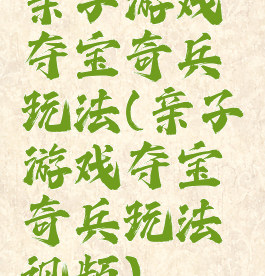 亲子游戏
夺宝奇兵
玩法(亲子
游戏夺宝
奇兵玩法
视频)